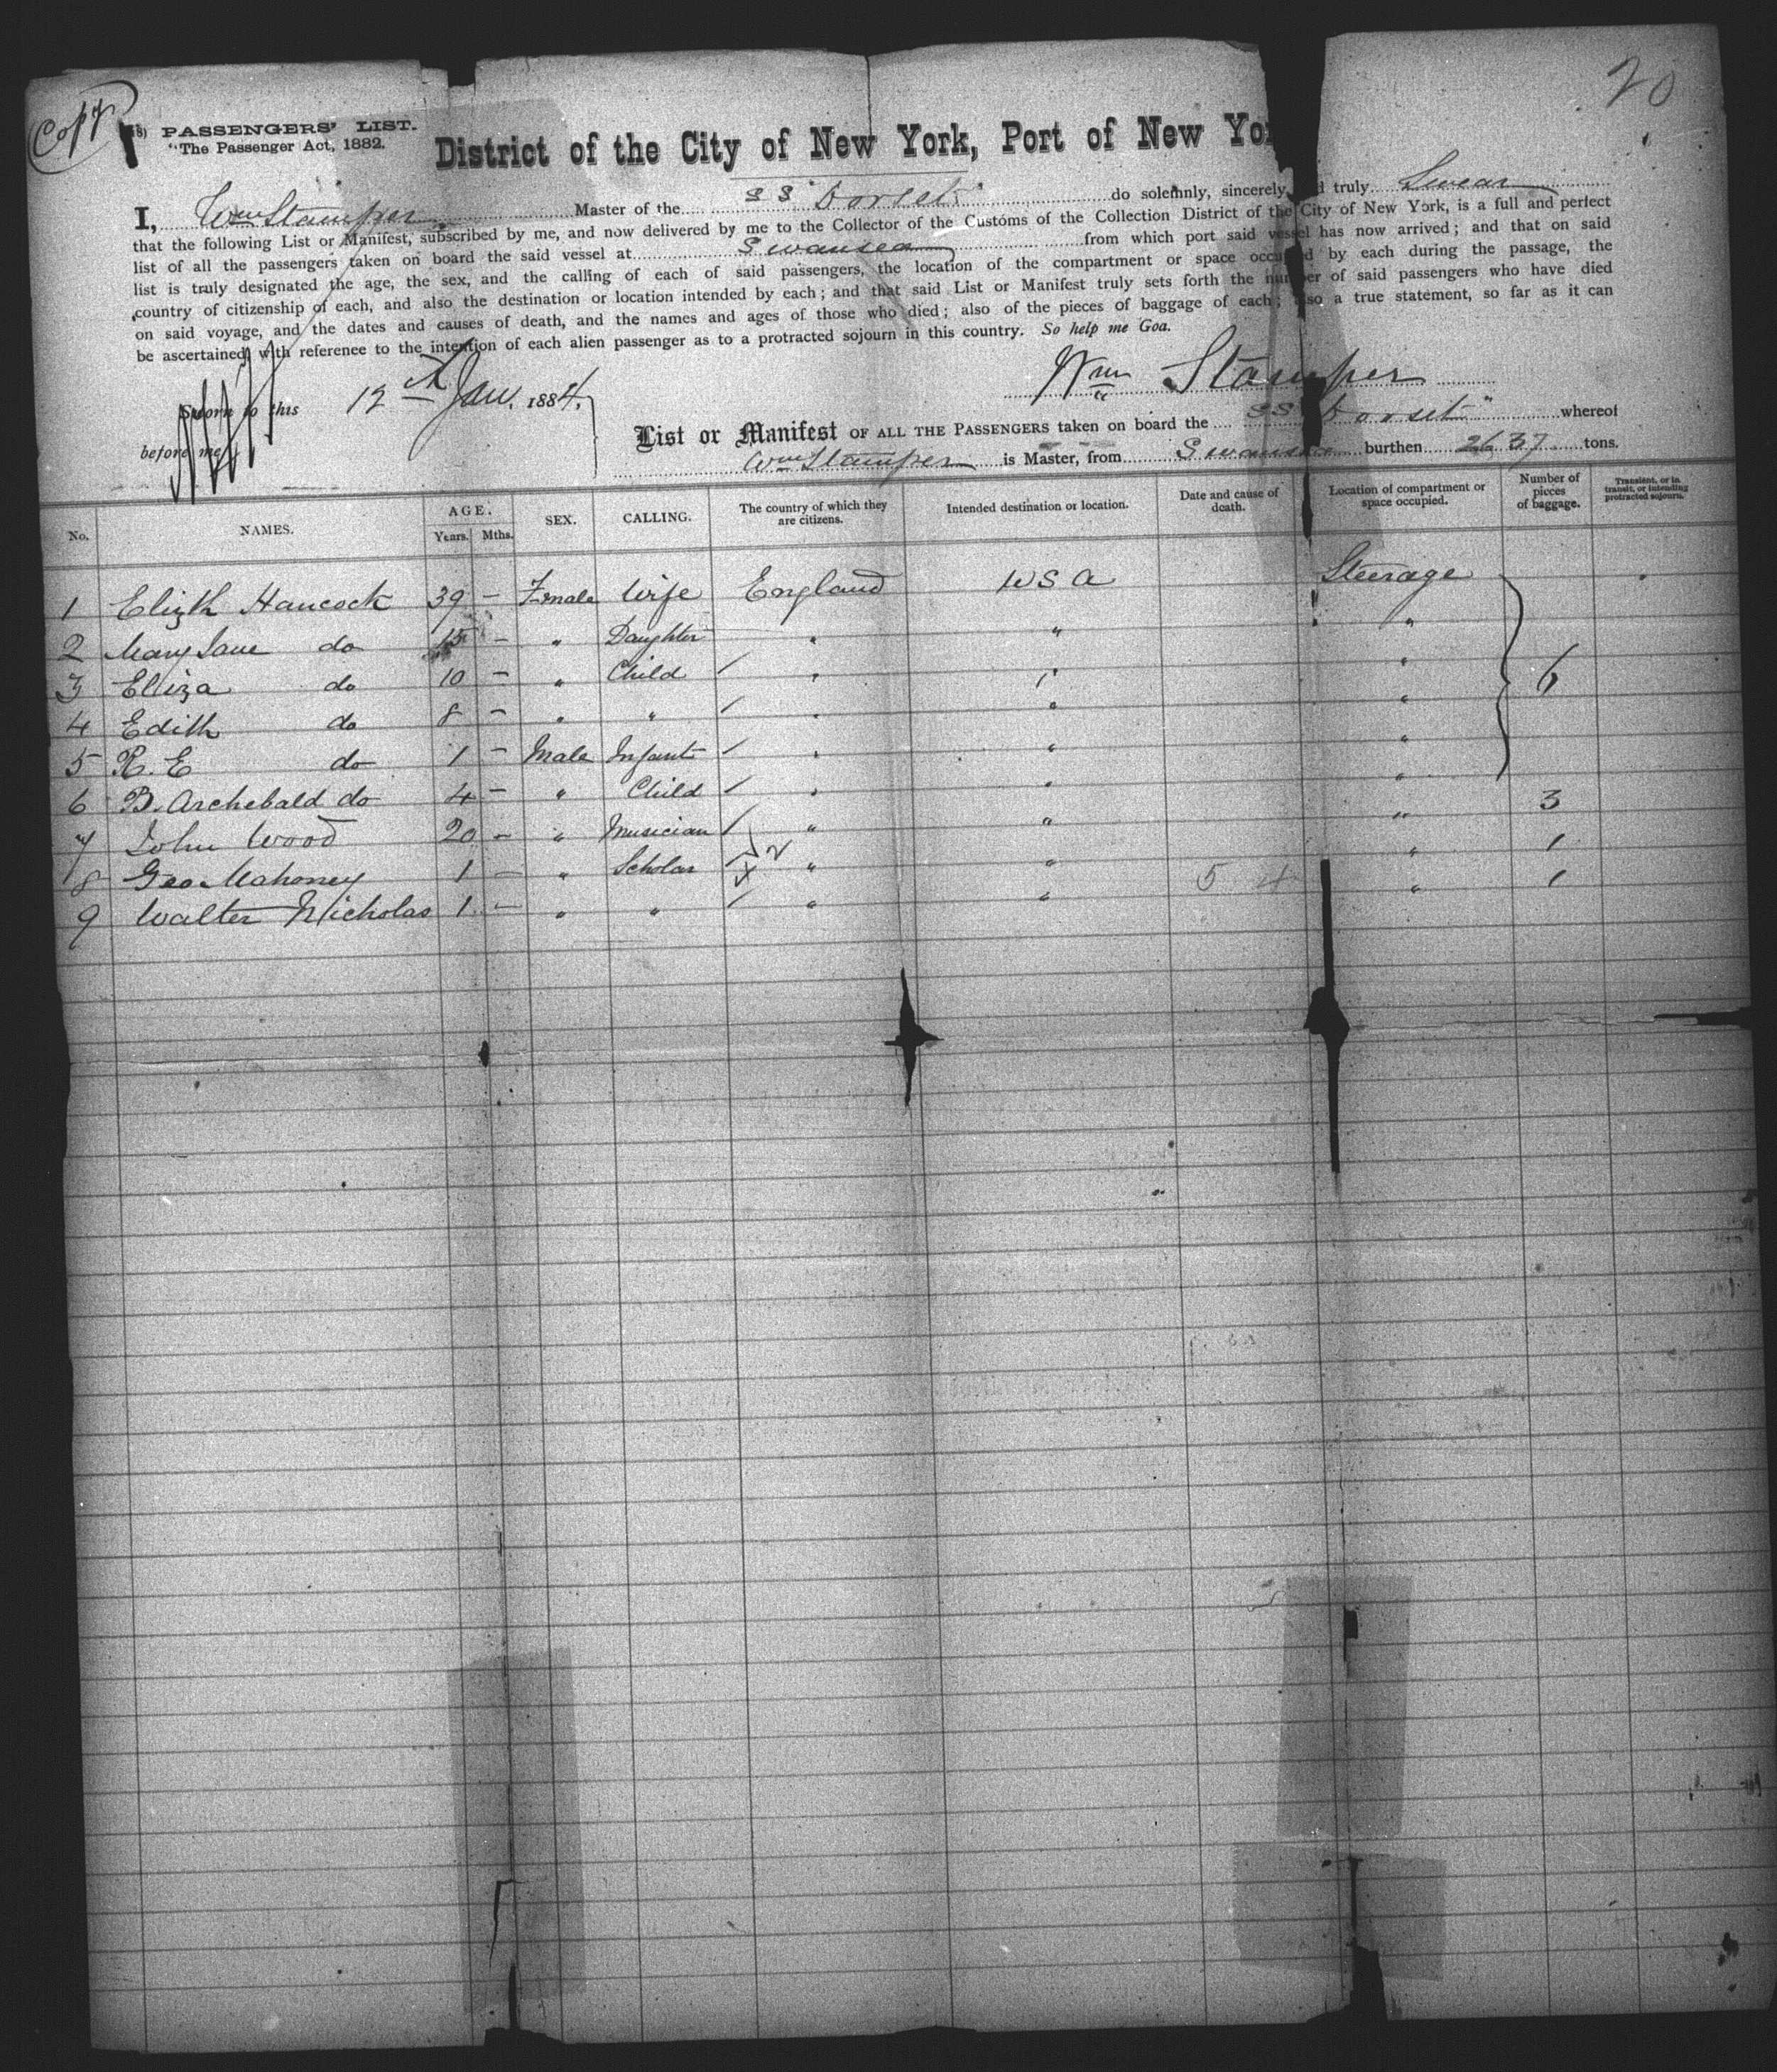 Copy
20
PASSENGERS' LIST.
"The Passenger Act, 1882.
District of the City of New York, Port of New Yor
I, Wm Stamper Master of the SS "Dorset" do solemnly, sincerely, d truly Swear
that the following List or Manifest, subscribed by me, and now delivered by me to the Collector of the Customs of the Collection District of the City of New York, is a full and perfect
list of all the passengers taken on board the said vessel at Swansea from which port said vessel has now arrived; and that on said
list is truly designated the age, the sex, and the calling of each of said passengers, the location of the compartment or space occupied by each during the passage, the
country of citizenship of each, and also the destination or location intended by each; and that said List or Manifest truly sets forth the number of said passengers who have died
on said voyage, and the dates and causes of death, and the names and ages of those who died; also of the pieces of baggage of each; also a true statement, so far as it can
be ascertained, with reference to the intention of each alien passenger as to a protracted sojourn in this country. So help me Goa.
Wm Stamper
Sworn to this 12th Jan. 1884,
before me
List or Manifest OF ALL THE PASSENGERS taken on board the SS "Dorset" whereof
Wm Stamper is Master, from Swansea burthen 2637 tons.
No. NAMES. AGE. Years. Mths. SEX. CALLING. The country of which they are citizens. Intended destination or location. Date and cause of death. Location of compartment or space occupied. Number of pieces of baggage. Transient, or in transit, or intending protracted sojourn.
1 Elizth Hancock 39 – Female Wife England U S A Steerage
2 Mary Jane do 15 – " Daughter " " "
3 Elliza do 10 – " Child " " " 6
4 Edith do 8 – " " " " "
5 R. E do 1 – Male Infant " " "
6 B. Archebald do 4 – " Child " " "
7 John Wood 20 – " Musician " " " 3
8 Geo Mahoney 1 – " Scholar " " " 1
9 Walter Nicholas 1 – " " " " 5 4 " 1